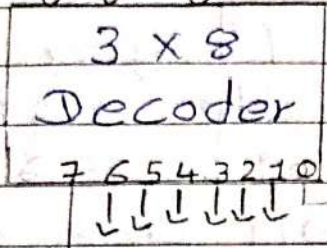 3 x 8
Decoder
7 6 5 4 3 2 1 0